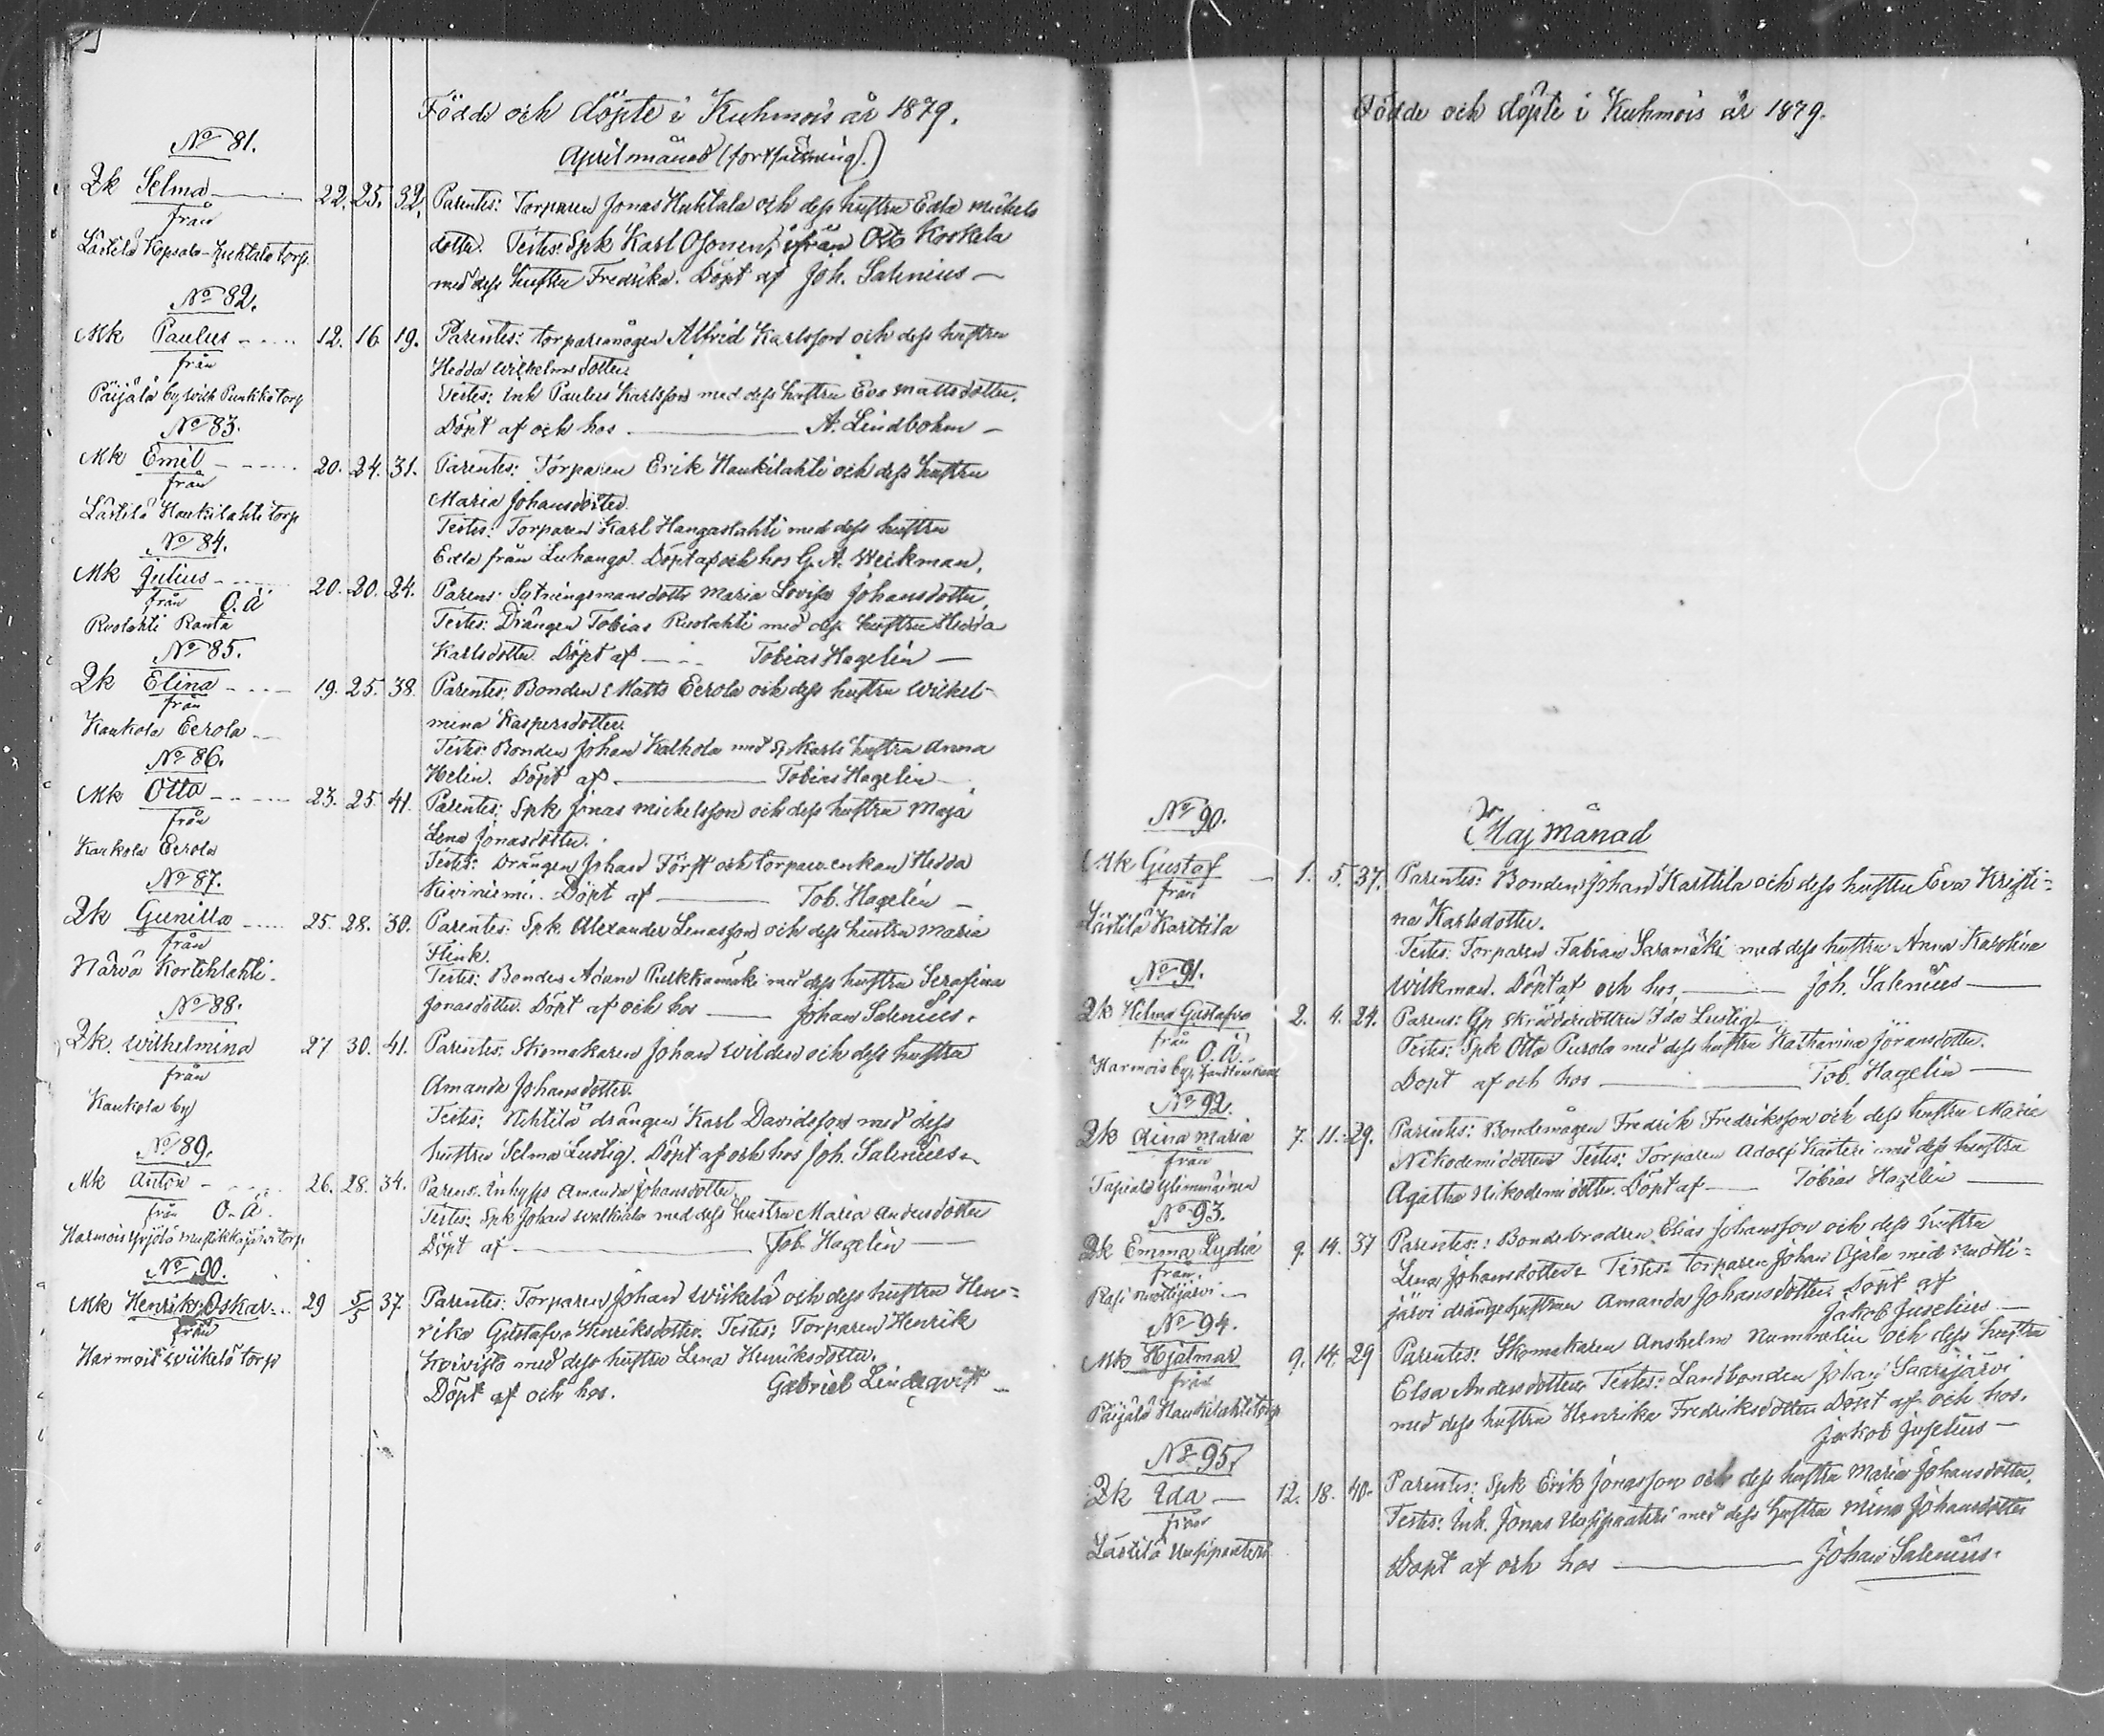 Födde och döpte i Kuhmois år 1879.
April månad (fortsättning.)
No 81.
Qk Selma 22. 25. 32. Parentes: Torparen Jonas Huhtala och dess hustru Edla Michels
från dotter. Testes: Spk Karl Osonen, ifrån Otto Koskela
Lästilä Kopsala-Huhtala torp. med dess hustru Fredrika. Döpt af Joh. Salenius —
No 82.
Mk Paulus 12. 16. 19. Parentes: torparemågen Alfrid Karlsson och dess hustru
från Hedda Wilhelmsdotter.
Päijälä by Punkka torp Testes: Inh Paulus Karlsson med dess hustru Eva Mattsdotter.
Döpt af och hos — A. Lindbohm —
No 83.
Mk Emil 20. 24. 31. Parentes: Torparen Erik Haukilahti och dess hustru
från Maria Johansdotter.
Lästilä Haukilahti torp Testes: Torparen Karl Hangaslahti med dess hustru
Edla från Luhango. Döpt af och hos G. A. Weckman.
No 84.
Mk Julius 20. 20. 24. Parens: Sytningsmansdottr Maria Lovisa Johansdotter,
från O.Ä Testes: Drängen Tobias Ruolahti med dess hustru Hedda
Ruolahti Ranta Karlsdotter. Döpt af — Tobias Hagelin —
No 85.
Qk Elina 19. 25. 38. Parentes: Bonden Matts Eerola och dess hustru Wilhel-
från mina Kaspersdotter.
Kaukola Eerola Testes: Bonden Johan Kalhola med Spk Karls hustru Anna
Helin. Döpt af — Tobias Hagelin —
No 86.
Mk Otto 23. 25. 41. Parentes: Spk Jonas Michelsson och dess hustru Maja
från Lena Jonasdotter.
Kaukola Eerola Testes: Drängen Johan Förss och torpareenkan Hedda
Kiviniemi. Döpt af — Tob. Hagelin —
No 87.
Qk Gunilla 25. 28. 30. Parentes: Spk. Alexander Lenasson och dess hustru Maria
från Flink.
Närvä Kortehlahti. Testes: Bonden Adam Pulkkamäki med dess hustru Serafina
Jonasdotter. Döpt af och hos — Johan Salenius.
No 88.
Qk. Wilhelmina 27 30. 41. Parentes: Skomakaren Johan Wilden och dess hustru
från Amanda Johansdotter.
Kaukola by Testes: Nihtilä drängen Karl Davidsson med dess
hustru Selma Lustig. Döpt af och hos Joh. Salenius
No 89.
Mk Anton 26. 28. 34. Parens: Inhyses Amanda Johansdotter.
från O.Ä. Testes: Spk Johan Walkiala med dess hustru Maria Andersdotter
Harmois Yrjölä Mustikkajärvi torp Döpt af — Tob. Hagelin —
No 90.
Mk Henrik Oskar 29 5/5 37. Parentes: Torparen Johan Wiikelä och dess hustru Hen-
från rika Gustafva Henriksdotter. Testes: Torparen Henrik
Harmois Wiikelä torp Koivisto med dess hustru Lena Henriksdotter.
Döpt af och hos. Gabriel Lindeqvist —
Födde och döpte i Kuhmois år 1879.
Maj månad
No 90.
Mk Gustaf 1. 5. 37. Parentes: Bonden Johan Karttila och dess hustru Eva Kristi-
från na Karlsdotter.
Lästilä Karttila Testes: Torparen Fabian Saramäki med dess hustru Anna Karolina
Wilkman. Döpt af och hos, — Joh. Salenius —
No 91.
Qk Hilma Gustafva 2. 4. 24. Parens: Skräddaredottren Ida Lustig
från O.Ä. Testes: Spk Otto Purola med dess hustru Katharina Göransdotter.
Harmois by, Döpt af och hos — Tob. Hagelin —
No 92.
Qk Aina Maria 7. 11. 29. Parentes: Bondemågen Fredrik Fredriksson och dess hustru Maria
från Nikodemidotter Testes: Torparen Adolf Kasteri med dess hustru
Tapiala Ylimmäinen Agatha Nikodemidotter. Döpt af — Tobias Hagelin —
No 93.
Qk Emma Lydia 9. 14. 37 Parentes: Bondebrodren Elias Johansson och dess hustru
från Lena Johansdotter. Testes: Torparen Johan Ojala med Nuotti-
Pasi Nuottijärvi järvi drängehustrun Amanda Johansdotter. Döpt af
Jakob Juselius —
No 94.
Mk Hjalmar 9. 14. 29 Parentes: Skomakaren Anshelm Nummelin och dess hustru
från Elsa Andersdotter Testes: Landbonden Johan Saarijärvi
Päijälä Haukilahti torp med dess hustru Henrika Fredriksdotter Döpt af och hos.
Jakob Juselius —
No 95.
Qk Ida 12. 18. 40. Parentes: Spk Erik Jonasson och dess hustru Maria Johansdotter.
från Testes: Inh. Jonas Uusipaateri med dess hustru Mina Johansdotter
Lästilä Uusipaateri Döpt af och hos — Johan Salenius.